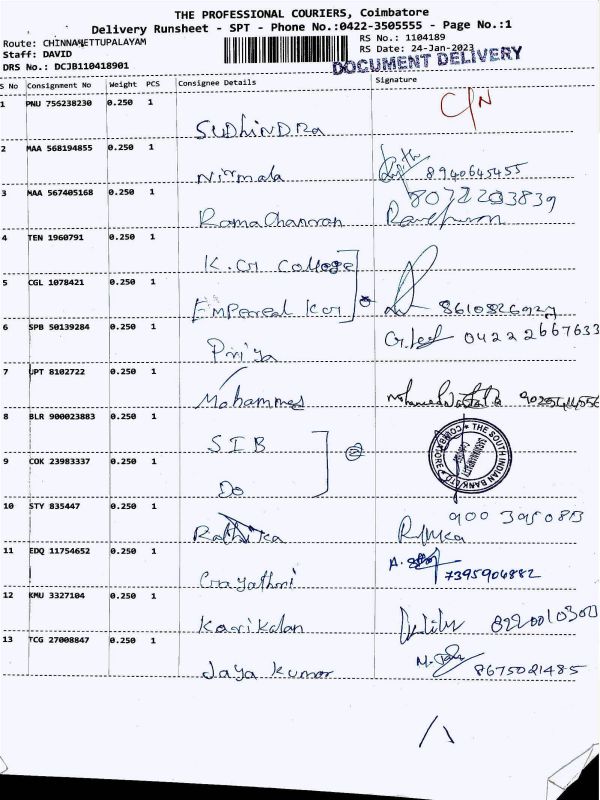 THE PROFESSIONAL COURIERS, Coimbatore
Delivery Runsheet - SPT - Phone No.:0422-3505555 - Page No.:1
Route: CHINNAMETTUPALAYAM
RS No.: 1104189
Staff: DAVID
RS Date: 24-Jan-2023
DRS No.: DCJB110418901
DOCUMENT DELIVERY
S No Consignment No Weight PCS Consignee Details Signature
1 PNU 756238230 0.250 1 SUDHINDRA C/N
2 MAA 568194855 0.250 1 Nirmala 8940645455
3 MAA 567405168 0.250 1 Ramachanran 8072203839
4 TEN 1960791 0.250 1 K.G College
5 CGL 1078421 0.250 1 8610826927
6 SPB 50139284 0.250 1 Priya 04222667633
7 JPT 8102722 0.250 1 Mohammed
8 BLR 900023883 0.250 1 SIB
THE SOUTH INDIAN BANK LTD. COIMBATORE
9 COK 23983337 0.250 1 Do
10 STY 835447 0.250 1 Rathika
11 EDQ 11754652 0.250 1 Gayathri 7395904882
12 KMU 3327104 0.250 1 Karikalan
13 TCG 27008847 0.250 1 Jaya kumar 8675021485